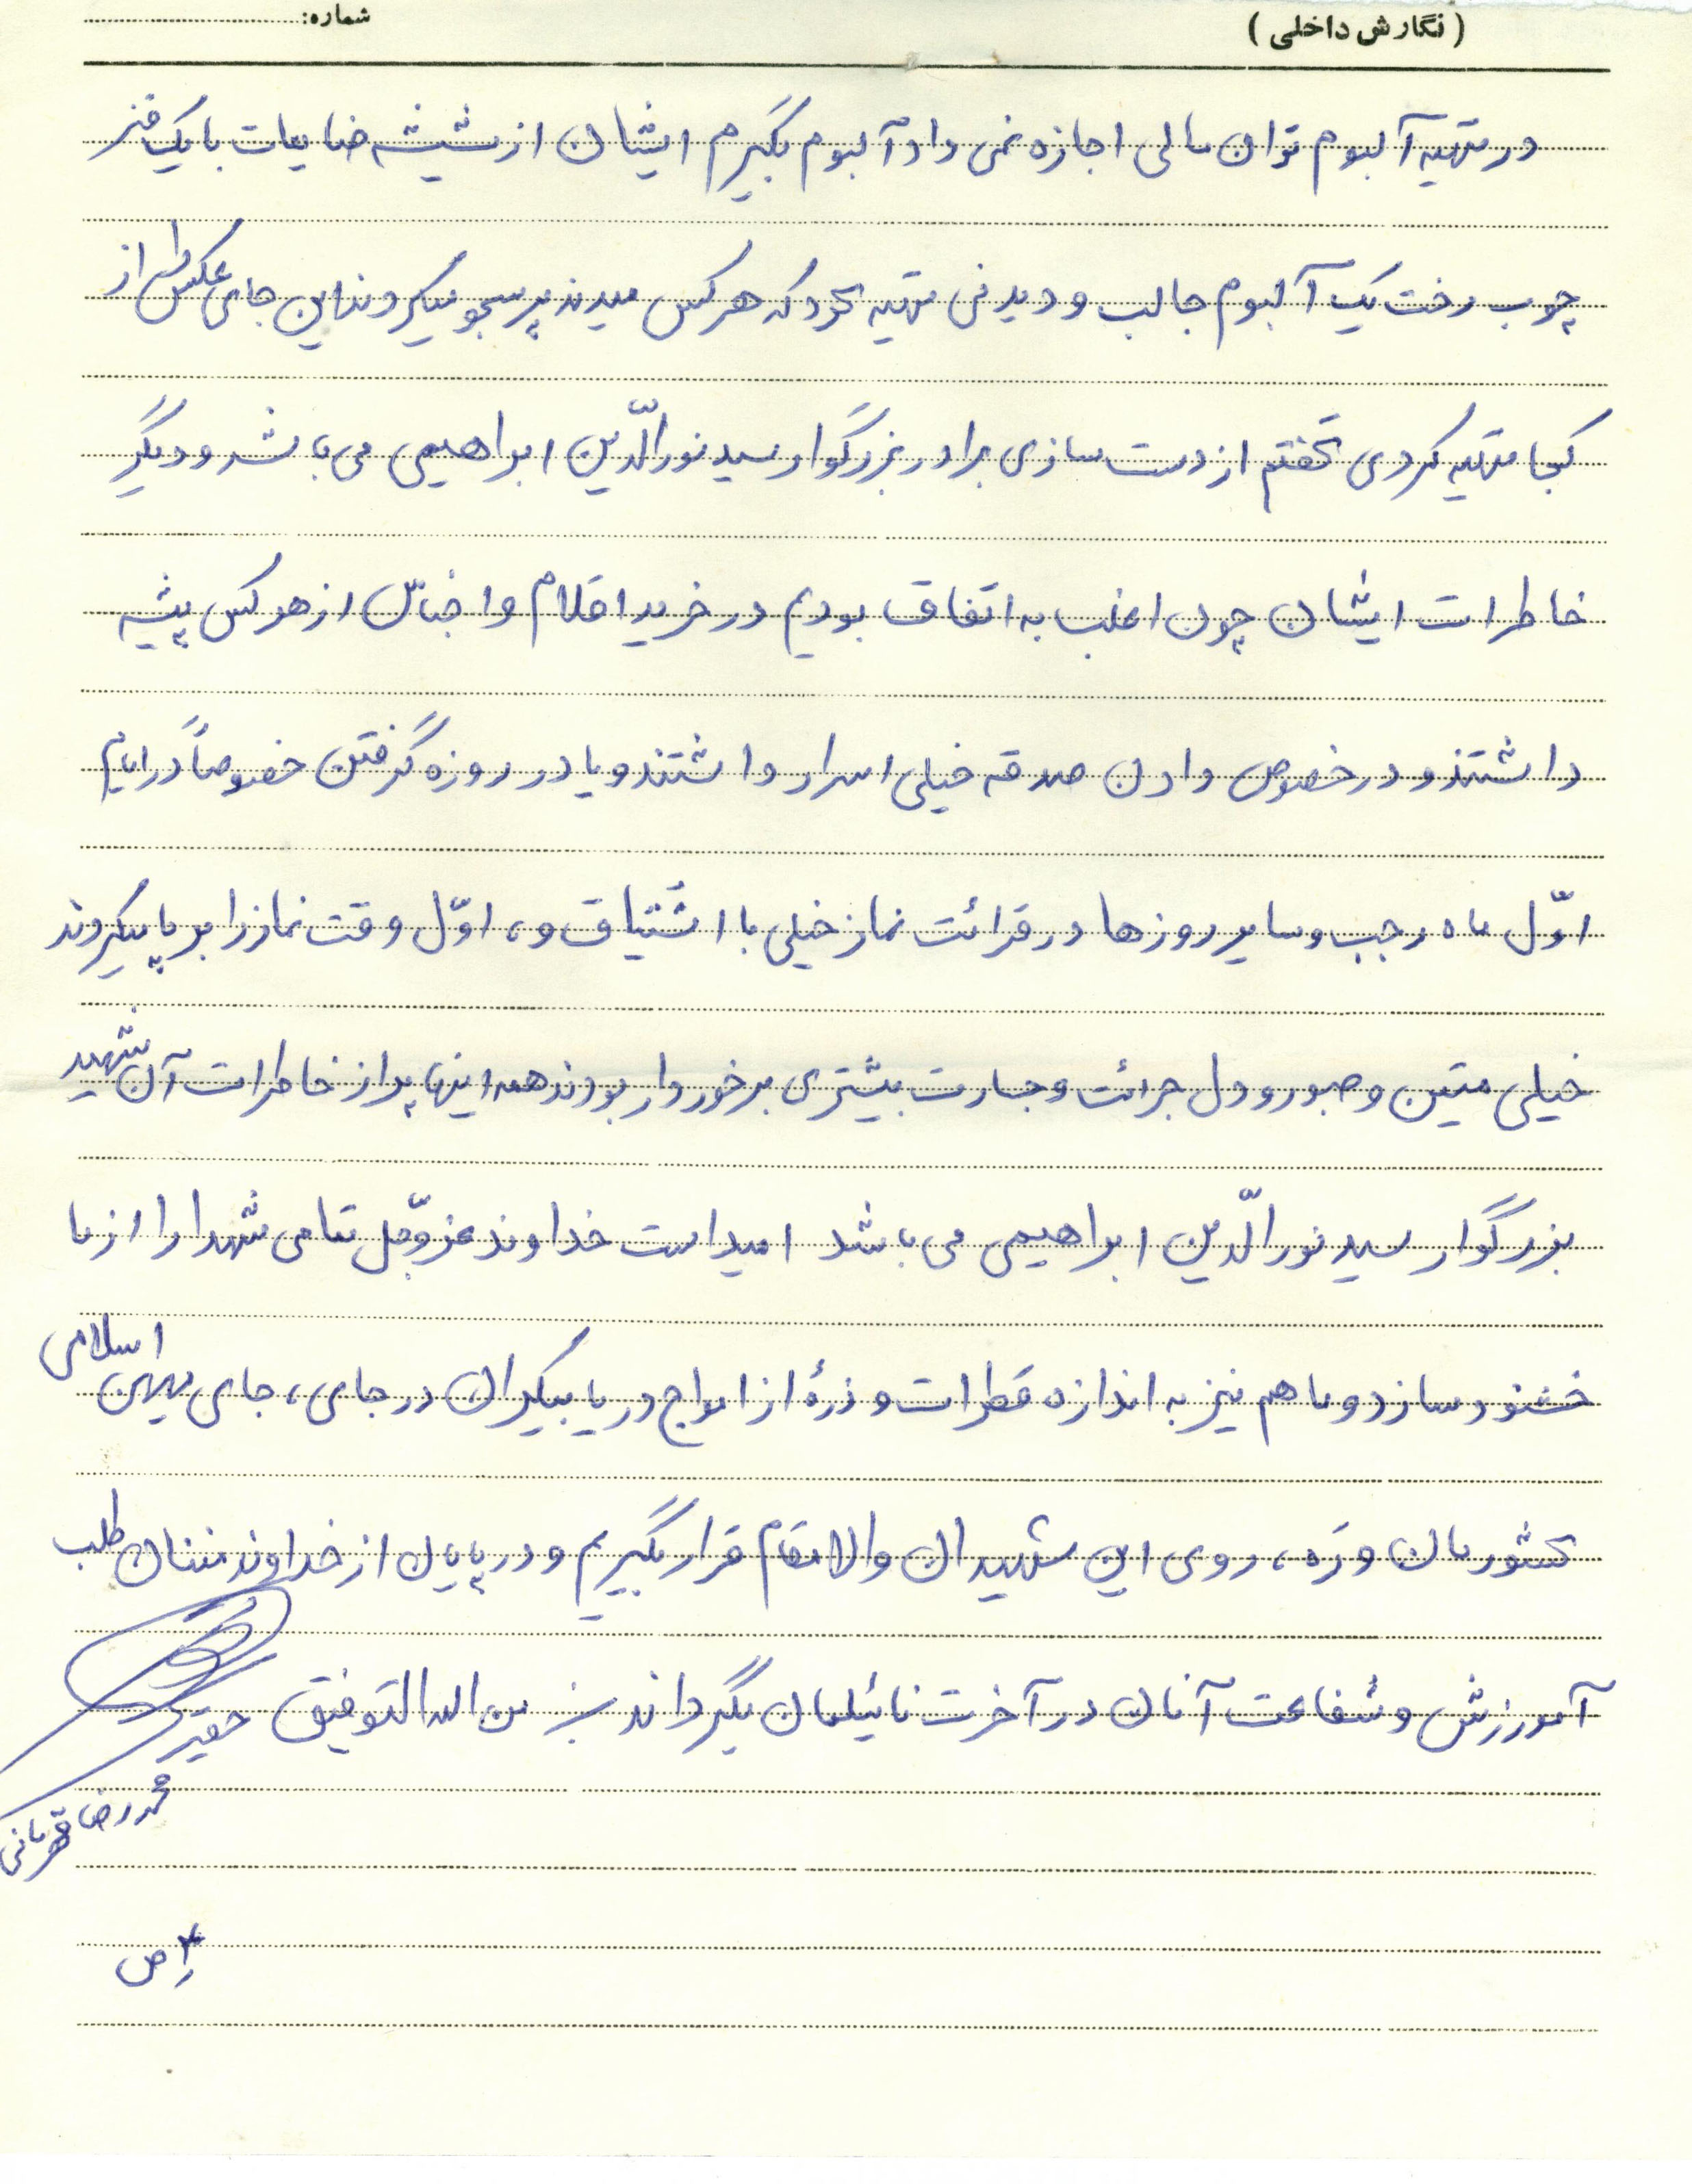 (نگارش داخلی)
شماره:
در تهیه آلبوم توان مالی اجازه نمی داد آلبوم بگیرم ایشان از شیشه ضایعات با یک فنر
چوب رخت یک آلبوم جالب و دیدنی تهیه کرد که هر کس میدید پرسجو میکردند این جای عکس را از
کجا تهیه کردی گفتم از دست سازی برادر بزرگوار سید نورالدّین ابراهیمی می باشد و دیگر
خاطرات ایشان چون اغلب به اتفاق بودیم در خرید اقلام و اجناس از هر کس پیشه
داشتند و در خصوص دادن صدقه خیلی اسرار داشتند و یا در روزه گرفتن خصوصاً در ایام
اوّل ماه رجب و سایر روزها در قرائت نماز خیلی با اشتیاق و، اوّل وقت نماز را بر پا میکردند
خیلی متین و صبور و دل جرائت و جسارت بیشتری برخوردار بودند همه اینها پر از خاطرات آن شهید
بزرگوار سید نورالّدین ابراهیمی می باشد امید است خداوند عزوّجل تمامی شهدا را از ما
خشنود سازد و ما هم نیز به اندازه قطرات و ذرۀ از امواج دریا بیکران در جای، جای میهن اسلامی
کشورمان و ره، روی این شهیدان والا مقام قرار بگیریم و در پایان از خداوند منان طلب
آمورزش و شفاعت آنان در آخرت نائیلمان بگرداند من الله التوفیق حقیر
محمدرضا قهرمانی
ص